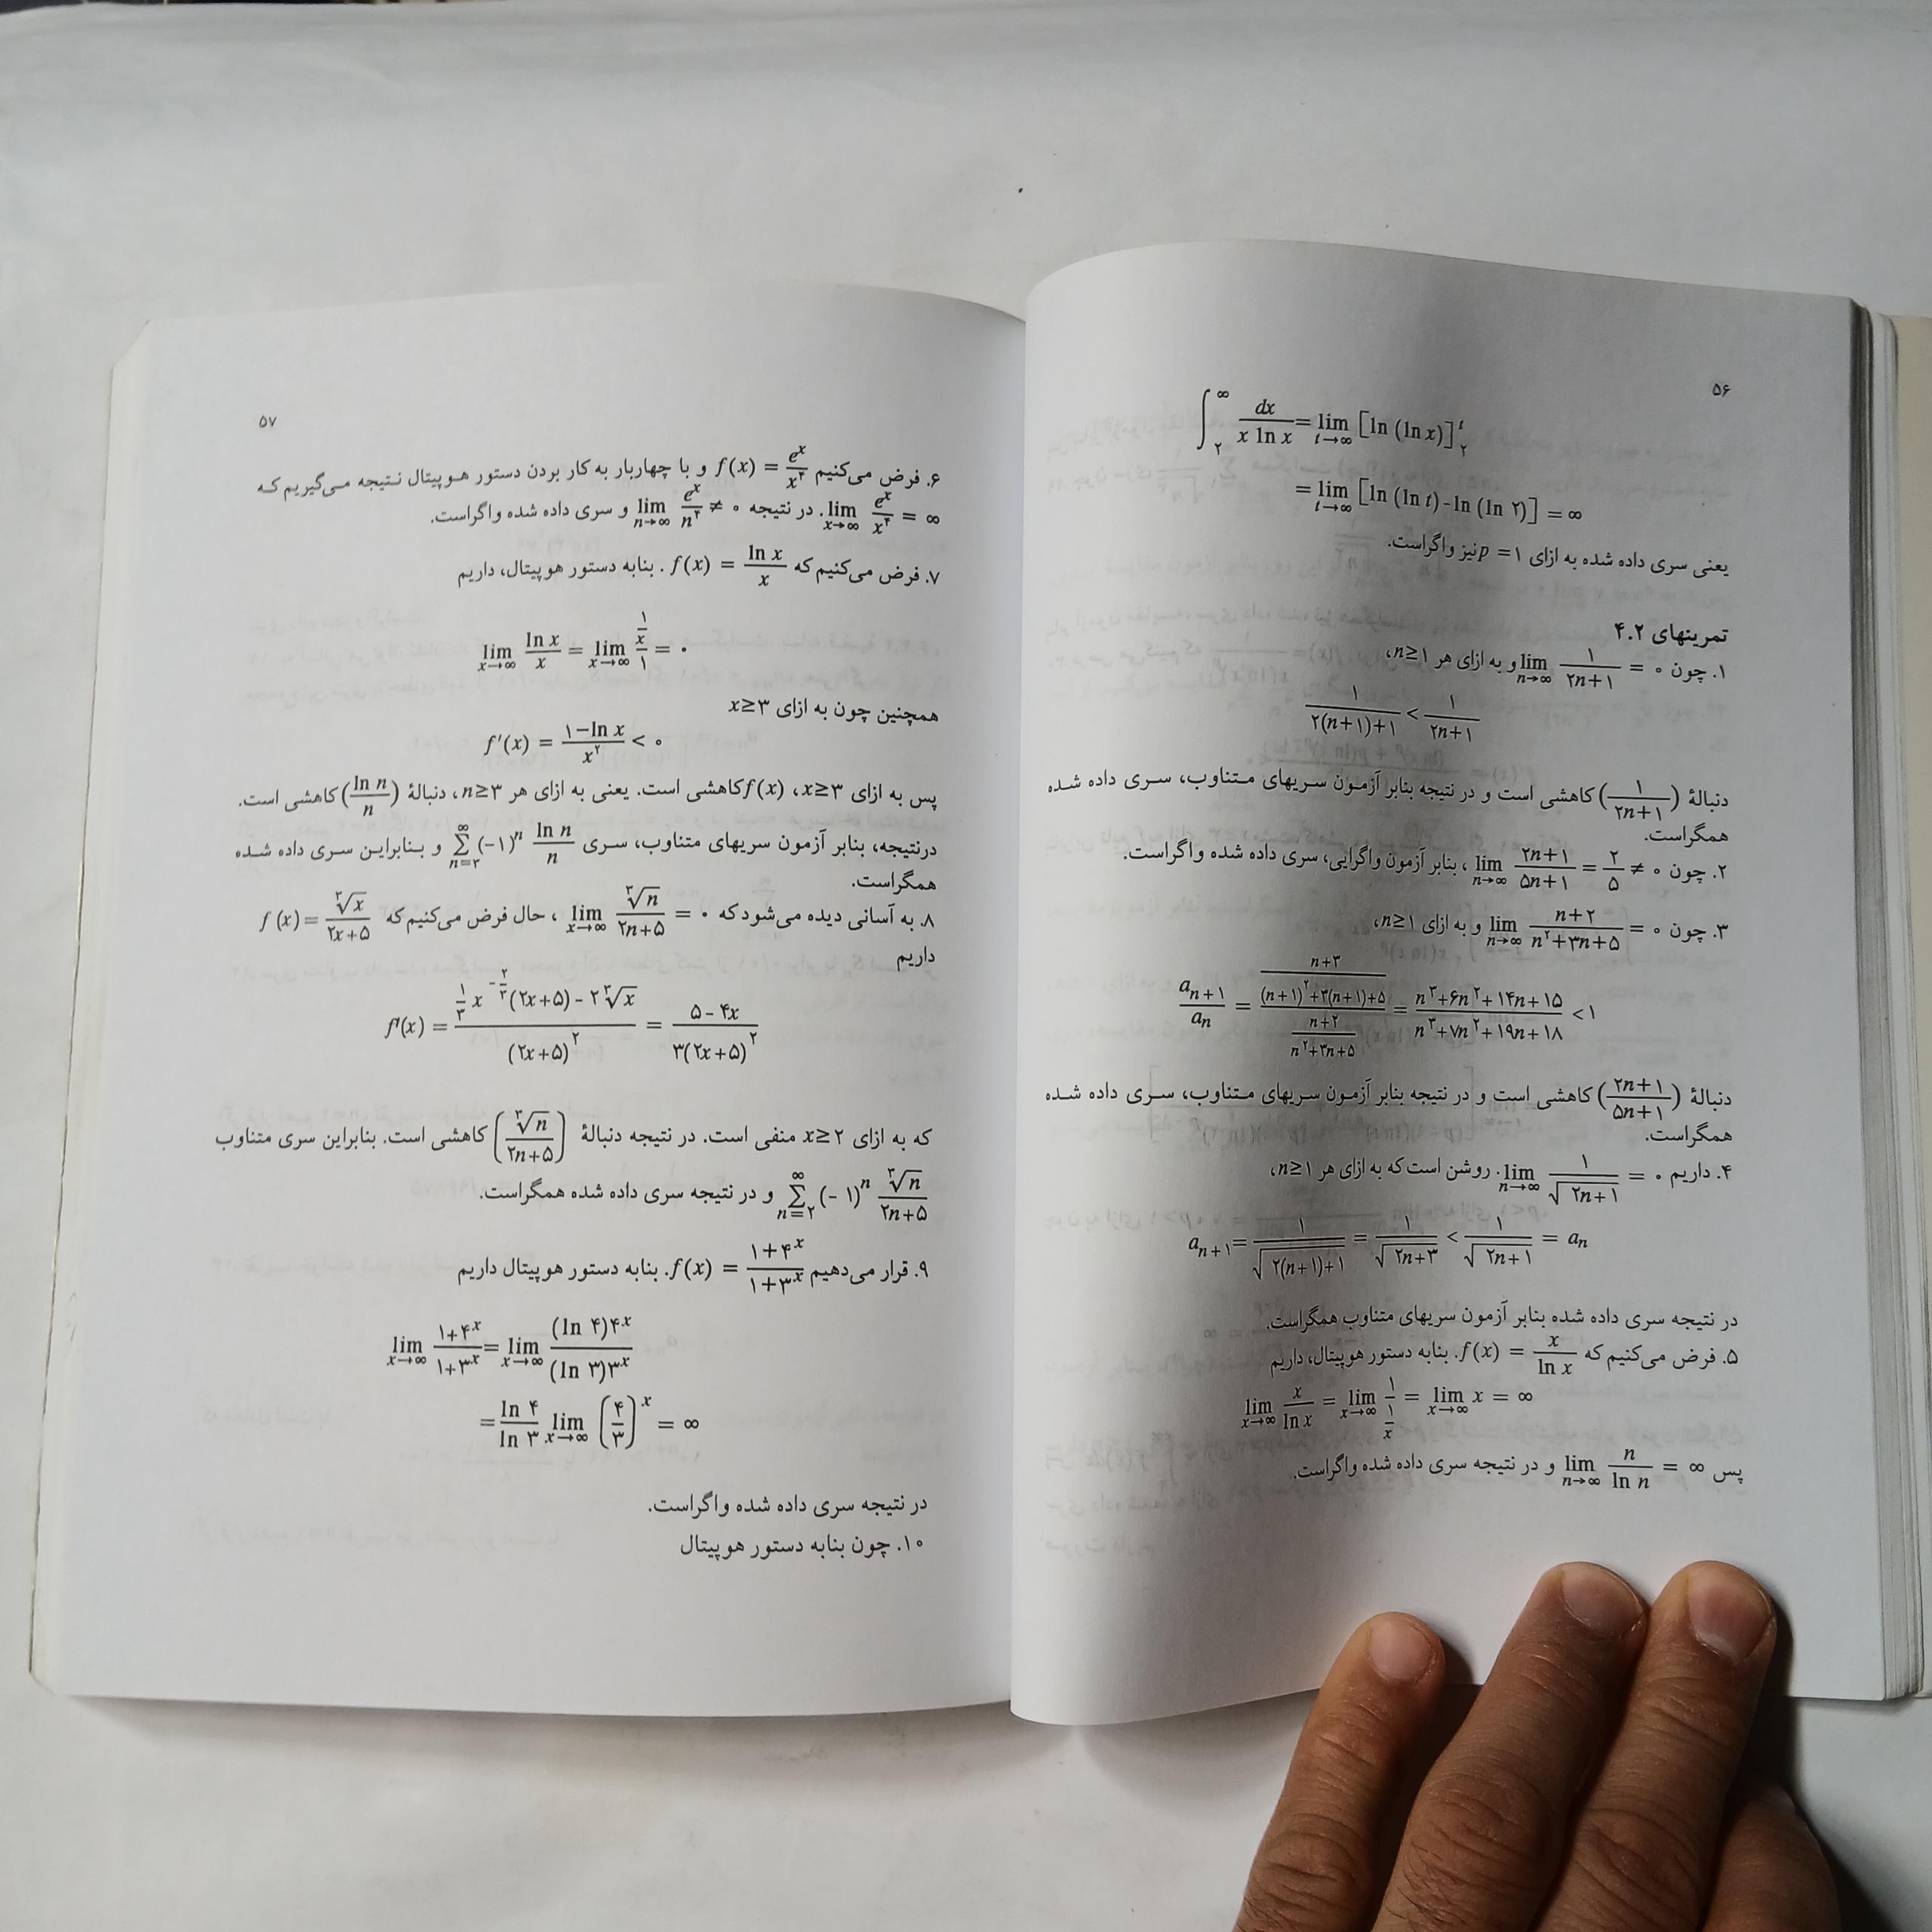 ۵۶
∫_۲^∞ dx/(x ln x) = lim_{t→∞} [ln (ln x)]_۲^t
= lim_{t→∞} [ln (ln t) - ln (ln ۲)] = ∞
یعنی سری داده شده به ازای p = ۱ نیز واگراست.
تمرینهای ۴.۲
۱. چون lim_{n→∞} ۱/(۲n+۱) = ۰ و به ازای هر n≥۱،
۱/(۲(n+۱)+۱) < ۱/(۲n+۱)
دنبالهٔ (۱/(۲n+۱)) کاهشی است و در نتیجه بنابر آزمون سریهای متناوب، سری داده شده
همگراست.
۲. چون lim_{n→∞} (۲n+۱)/(۵n+۱) = ۲/۵ ≠ ۰، بنابر آزمون واگرایی، سری داده شده واگراست.
۳. چون lim_{n→∞} (n+۲)/(n^۲+۳n+۵) = ۰ و به ازای n≥۱،
a_{n+۱}/a_n = ((n+۳)/((n+۱)^۲+۳(n+۱)+۵))/((n+۲)/(n^۲+۳n+۵)) = (n^۳+۶n^۲+۱۴n+۱۵)/(n^۳+۷n^۲+۱۹n+۱۸) < ۱
دنبالهٔ ((۲n+۱)/(۵n+۱)) کاهشی است و در نتیجه بنابر آزمون سریهای متناوب، سری داده شده
همگراست.
۴. داریم lim_{n→∞} ۱/√(۲n+۱) = ۰. روشن است که به ازای هر n≥۱،
a_{n+۱} = ۱/√(۲(n+۱)+۱) = ۱/√(۲n+۳) < ۱/√(۲n+۱) = a_n
در نتیجه سری داده شده بنابر آزمون سریهای متناوب همگراست.
۵. فرض می‌کنیم که f(x) = x/(ln x). بنابه دستور هوپیتال، داریم
lim_{x→∞} x/(ln x) = lim_{x→∞} ۱/(۱/x) = lim_{x→∞} x = ∞
پس lim_{n→∞} n/(ln n) = ∞ و در نتیجه سری داده شده واگراست.
۵۷
۶. فرض می‌کنیم f(x) = e^x/x^۴ و با چهاربار به کار بردن دستور هوپیتال نتیجه می‌گیریم که
lim_{x→∞} e^x/x^۴ = ∞. در نتیجه lim_{n→∞} e^x/n^۴ ≠ ۰ و سری داده شده واگراست.
۷. فرض می‌کنیم که f(x) = (ln x)/x. بنابه دستور هوپیتال، داریم
lim_{x→∞} (ln x)/x = lim_{x→∞} (۱/x)/۱ = ۰
همچنین چون به ازای x≥۳
f'(x) = (۱-ln x)/x^۲ < ۰
پس به ازای x≥۳، f(x) کاهشی است. یعنی به ازای هر n≥۳، دنبالهٔ ((ln n)/n) کاهشی است.
درنتیجه، بنابر آزمون سریهای متناوب، سری ∑_{n=۲}^∞ (-۱)^n (ln n)/n و بنابراین سری داده شده
همگراست.
۸. به آسانی دیده می‌شود که lim_{x→∞} ∛n/(۲n+۵) = ۰، حال فرض می‌کنیم که f(x) = ∛x/(۲x+۵)
داریم
f'(x) = ((۱/۳)x^{-۲/۳}(۲x+۵) - ۲∛x)/(۲x+۵)^۲ = (۵-۴x)/(۳(۲x+۵)^۲)
که به ازای x≥۲ منفی است. در نتیجه دنبالهٔ (∛n/(۲n+۵)) کاهشی است. بنابراین سری متناوب
∑_{n=۲}^∞ (-۱)^n ∛n/(۲n+۵) و در نتیجه سری داده شده همگراست.
۹. قرار می‌دهیم f(x) = (۱+۴^x)/(۱+۳^x). بنابه دستور هوپیتال داریم
lim_{x→∞} (۱+۴^x)/(۱+۳^x) = lim_{x→∞} ((ln ۴)۴^x)/((ln ۳)۳^x)
= (ln ۴)/(ln ۳) lim_{x→∞} (۴/۳)^x = ∞
در نتیجه سری داده شده واگراست.
۱۰. چون بنابه دستور هوپیتال